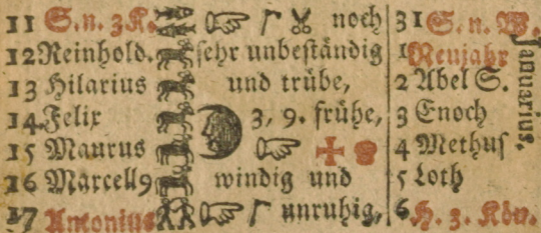 11 S. n. 3 K. noch 31 S. n. W.
12 Reinhold. sehr unbeständig 1 Neujahr
13 Hilarius und trübe, 2 Abel S.
14 Felix 3, 9. frühe, 3 Enoch
15 Maurus 4 Methus
16 Marcell9 windig und 5 Loth
17 Antonius unruhig, 6 H. 3. Kön.
Januarius.